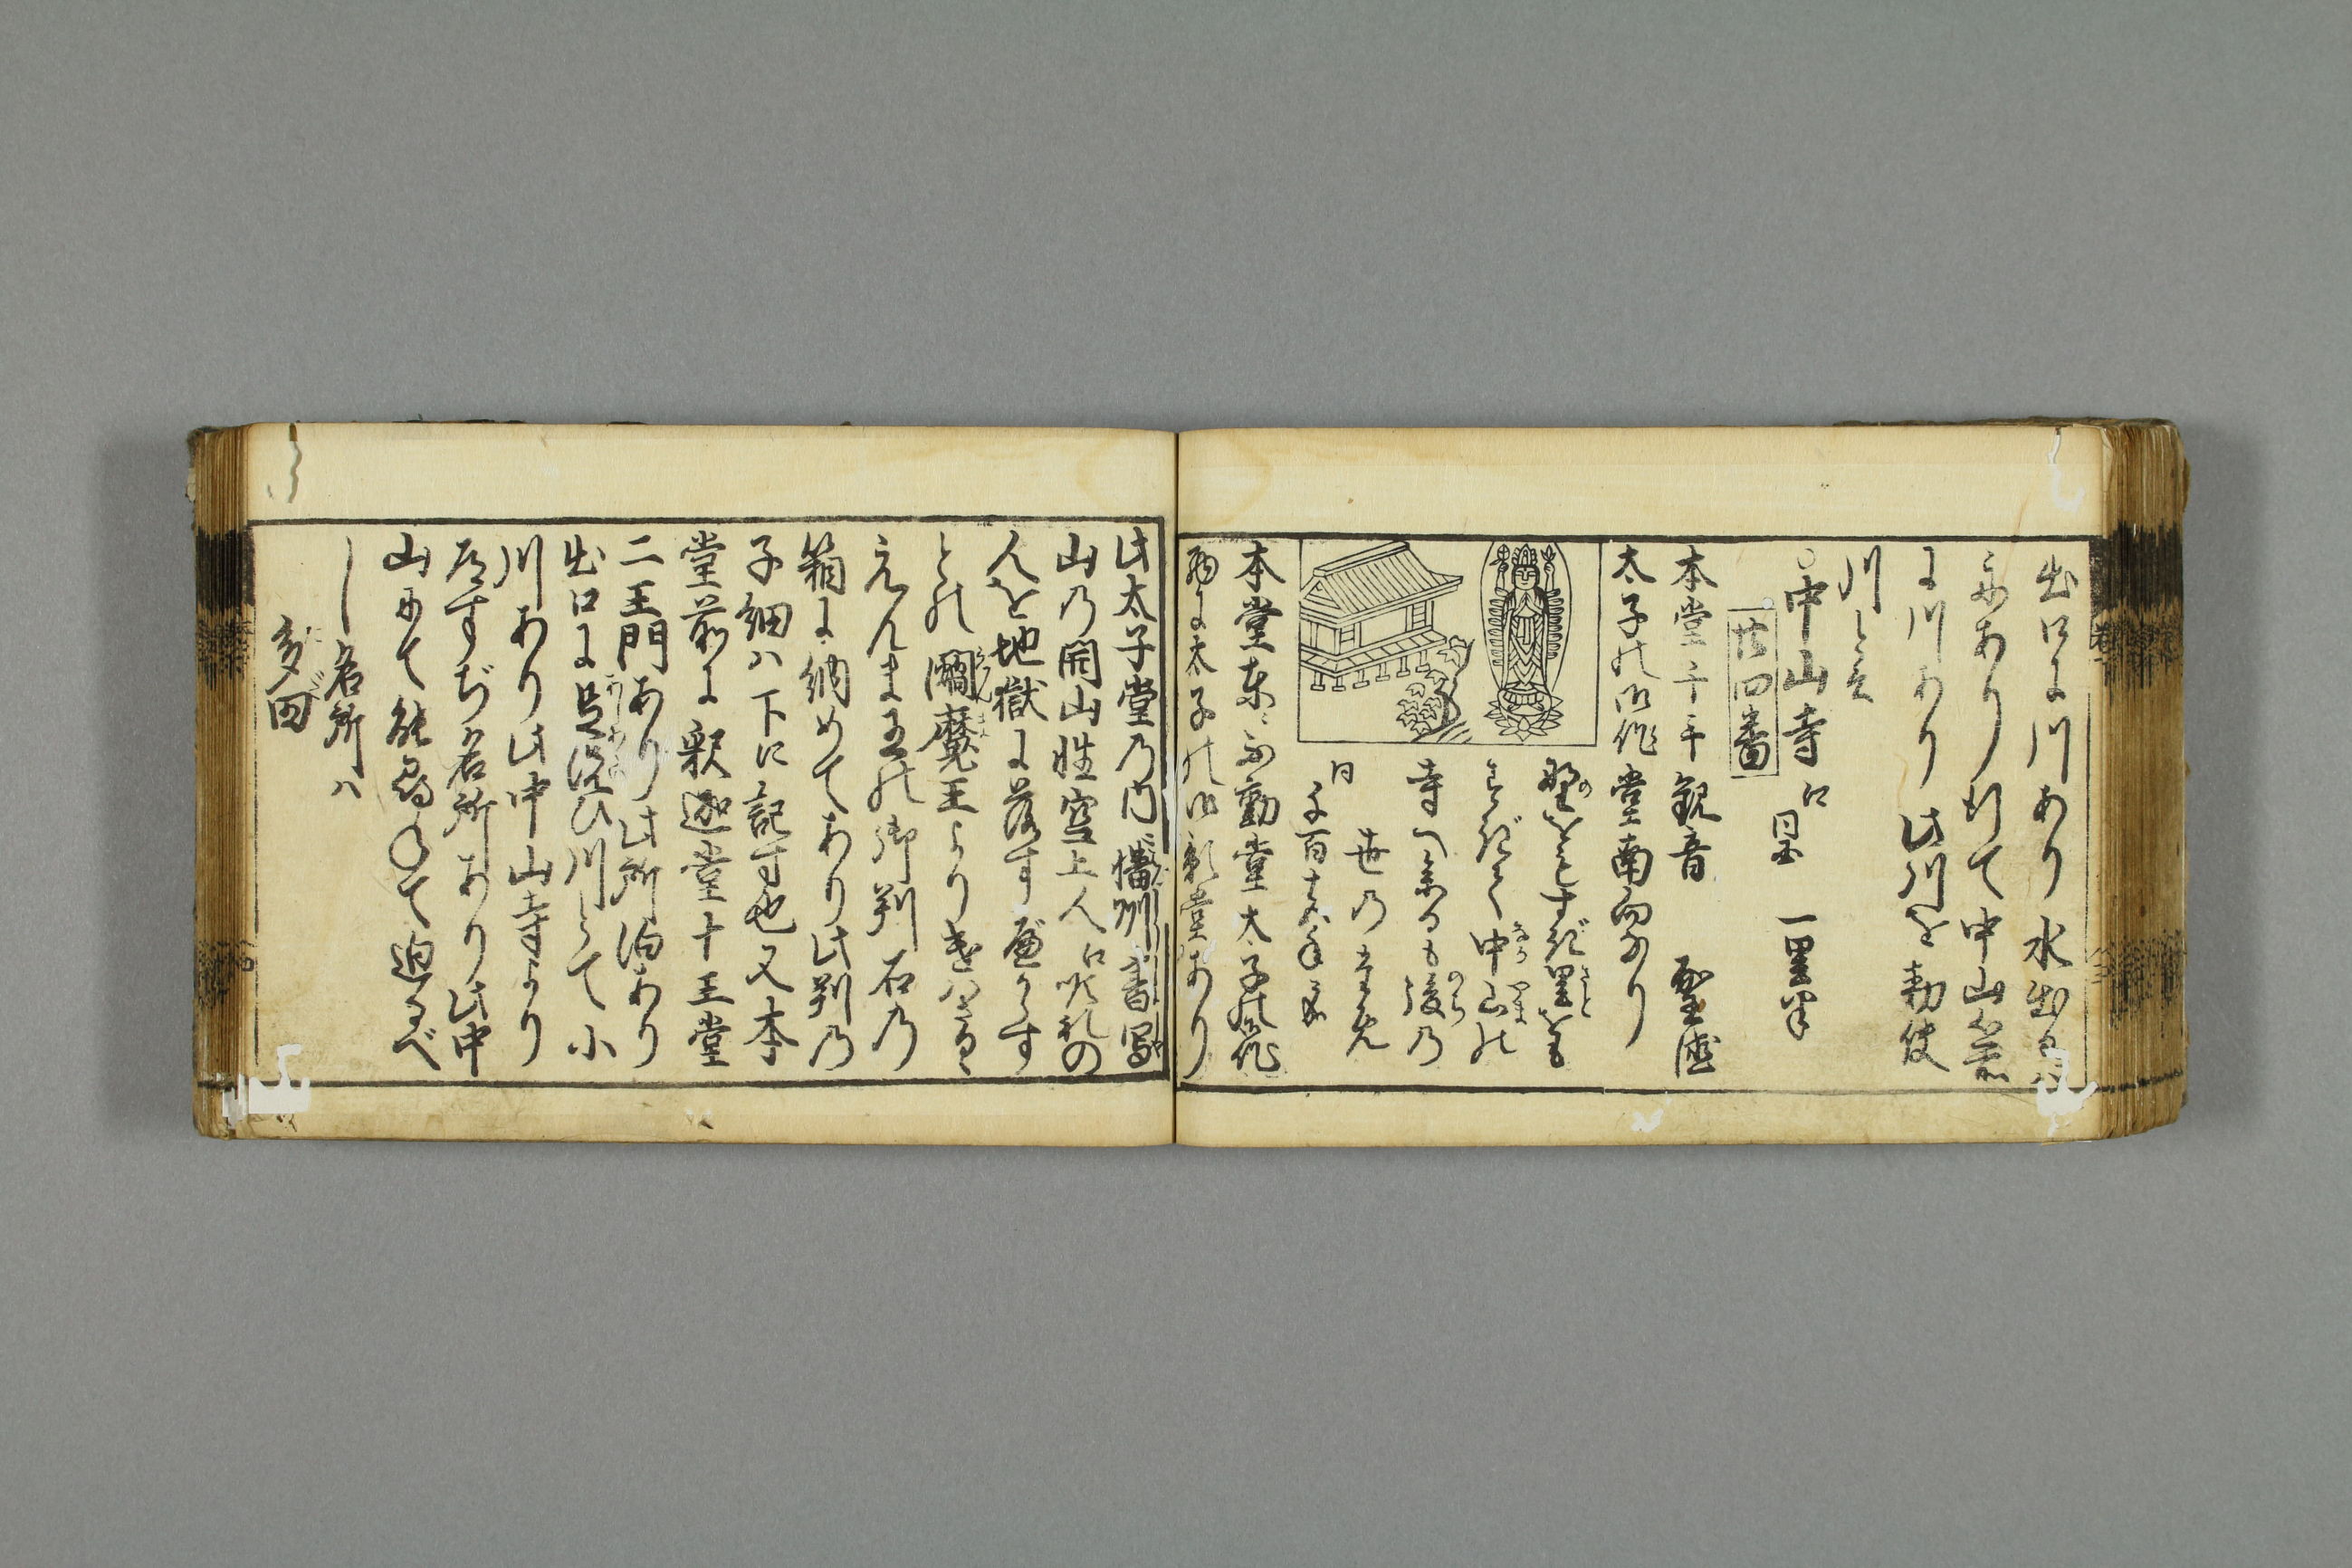 出口に川あり水出れバ
舟あり行て中山の前
に川あり此川を勅使
川と云
○中山寺に 同国 一里半
廿四番
本堂千手観音 聖徳
太子の御作堂南向なり
野をもすぎ里をも
すぎて中山の
寺へ参るも後の
世のため
本堂東に不動堂太子御作
西に太子の御影堂あり
此太子堂乃内播州書写
山乃開山性空上人に咒札の
人を地獄に落すべからす
との閻魔王より
えんま王の御判石乃
箱に納めてあり此判乃
子細ハ下に記す也又本
堂前に釈迦堂十王堂
二王門あり此所泊あり
出口に足洗ひ川とて小
川あり此中山寺より
道すぢ名所あり此中
山にて能尋ねて廻るべ
し名所ハ
多田